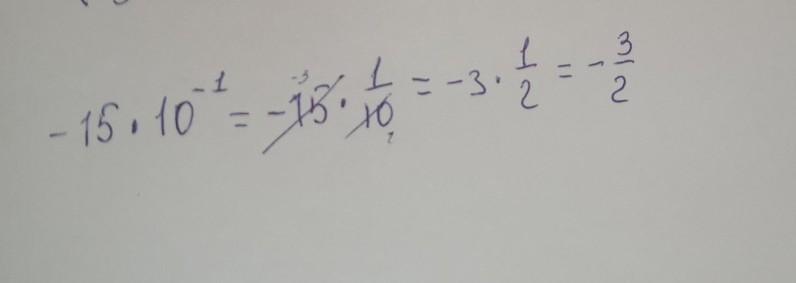 -15 · 10⁻¹ = -15 · 1/10 = -3 · 1/2 = -3/2